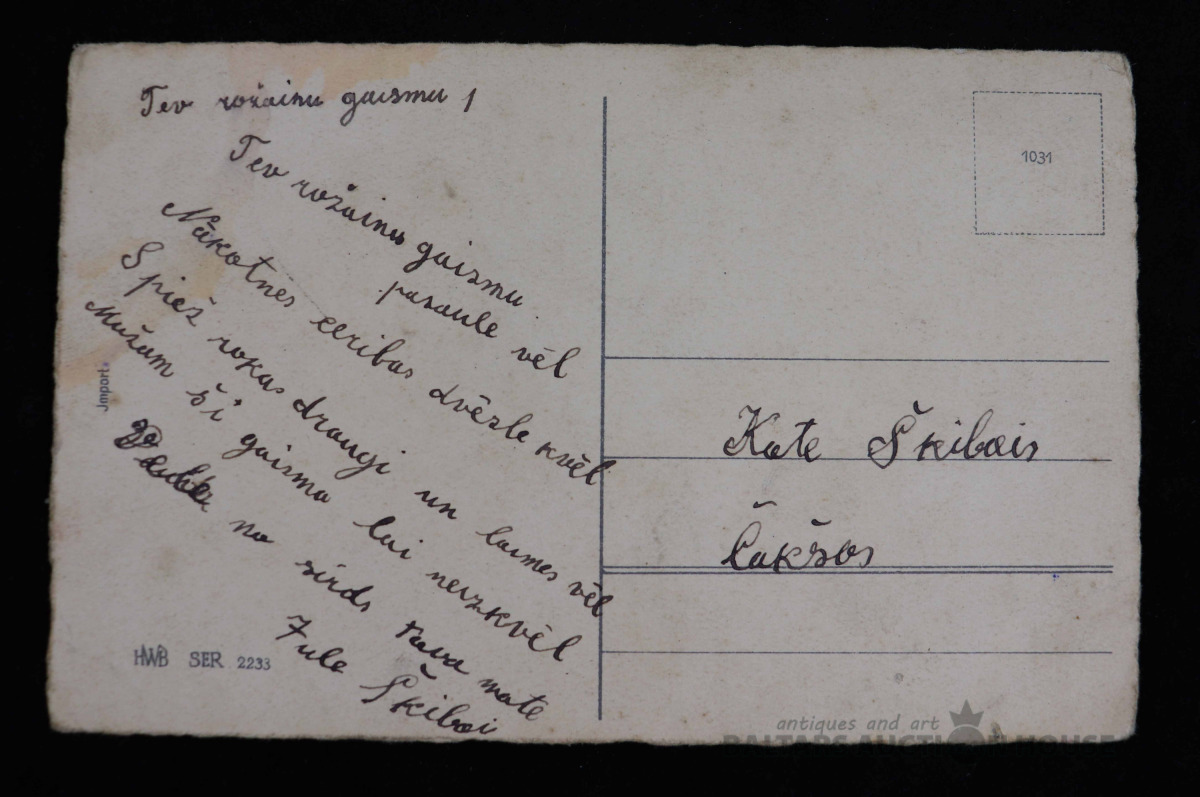 Tev rožainu gaismu !
Tev rožainu gaismu
pasaule vēl
Nākotnes ceribas dvēsle kvēl
Spiež rokas draugi un laimes vēl
Mužam ši gaisma lai neizkvēl
no sirds tava mate
Jule Škibai
Import
HWB SER 2233
1031
Kate Škibais
Čakšos
antiques and art
BALTARS AUCTION HOUSE